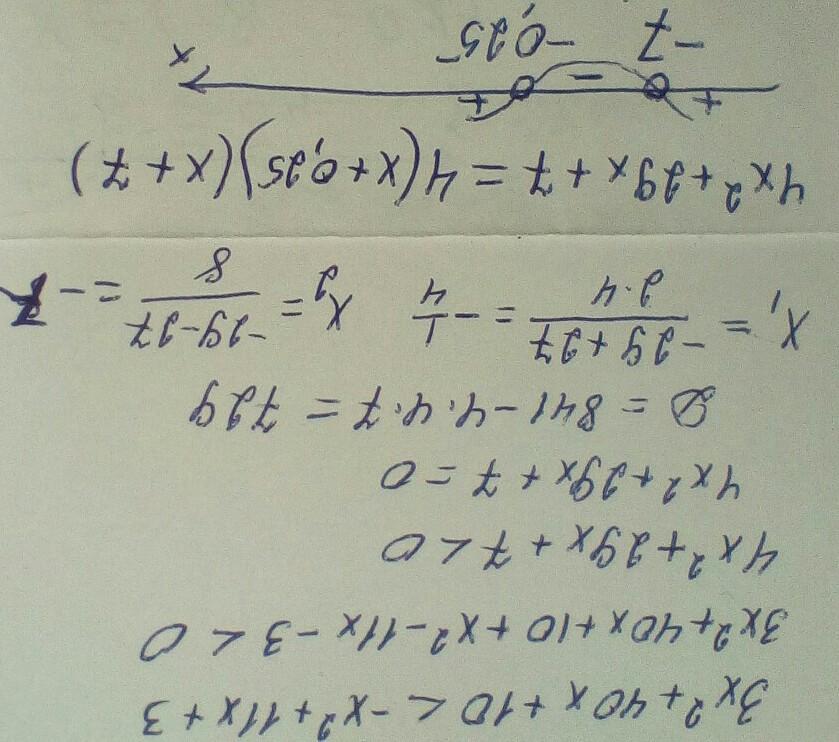 3x² + 40x + 10 < -x² + 11x + 3
3x² + 40x + 10 + x² - 11x - 3 < 0
4x² + 29x + 7 < 0
4x² + 29x + 7 = 0
D = 841 - 4·4·7 = 729
x₁ = (-29 + 27)/(2·4) = -1/4 x₂ = (-29 - 27)/8 = -7
4x² + 29x + 7 = 4(x + 0,25)(x + 7)
+ - + x
-7 -0,25